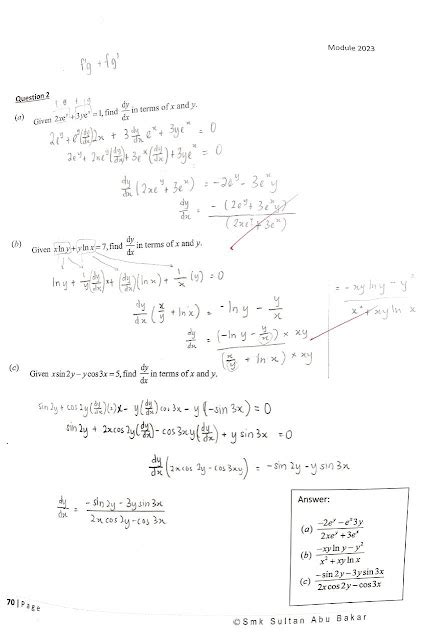 Module 2023
f'g + fg'
Question 2
(a) Given 2xe^y + 3ye^x = 1, find dy/dx in terms of x and y.
2e^y + e^y(dy/dx)2x + 3 dy/dx e^x + 3ye^x = 0
2e^y + 2xe^y(dy/dx) + 3e^x(dy/dx) + 3ye^x = 0
dy/dx (2xe^y + 3e^x) = -2e^y - 3e^x y
dy/dx = -(2e^y + 3e^x y)/(2xe^y + 3e^x)
(b) Given x ln y + y ln x = 7, find dy/dx in terms of x and y.
ln y + 1/y(dy/dx)x + (dy/dx)(ln x) + 1/x (y) = 0
dy/dx (x/y + ln x) = -ln y - y/x
dy/dx = (-ln y - y/x) × xy/(x/y + ln x) × xy
= -xy ln y - y²/x² + xy ln x
(c) Given x sin 2y - y cos 3x = 5, find dy/dx in terms of x and y.
sin 2y + cos 2y(dy/dx)(2)x - y(dy/dx) cos 3x - y(-sin 3x) = 0
sin 2y + 2x cos 2y(dy/dx) - cos 3xy(dy/dx) + y sin 3x = 0
dy/dx (2x cos 2y - cos 3xy) = -sin 2y - y sin 3x
dy/dx = -sin 2y - 3y sin 3x/2x cos 2y - cos 3x
Answer:
(a) -2e^y - e^x 3y/2xe^y + 3e^x
(b) -xy ln y - y²/x² + xy ln x
(c) -sin 2y - 3y sin 3x/2x cos 2y - cos 3x
70 | Page
© Smk Sultan Abu Bakar